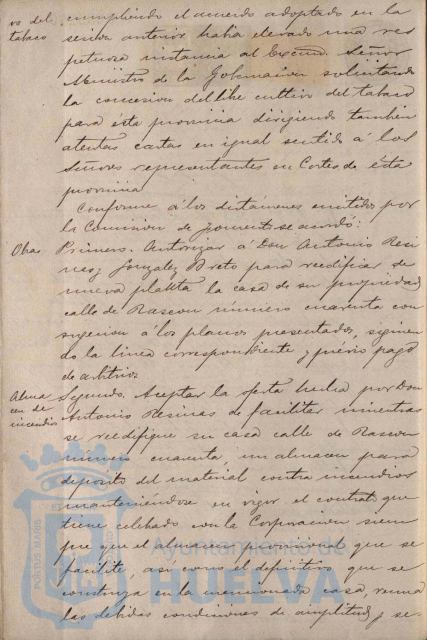 vo del
tabaco
cumpliendo el acuerdo adoptado en la
sesion anterior habia elevado una res
petuosa instancia al Excmo. Señor
Ministro de la Gobernacion solicitando
la concesion del libre cultivo del tabaco
para ésta provincia dirigiendo tambien
atentas cartas en igual sentido á los
Señores representantes en Cortes de ésta
provincia
Conforme á los dictamenes emitidos por
la Comision de fomento se acordó:
Obras
Primero. Autorizar á Don Antonio Resi
nas y Gonzalez Breto para reedificar de
nueva planta la casa de su propiedad
calle de Rascon número cuarenta con
sugecion á los planos presentados, siguien
do la linea correspondiente y prévio pago
de arbitrios
Alma
cen de
incendios
Segundo. Aceptar la oferta hecha por Don
Antonio Resinas de facilitar mientras
se reedifique su casa calle de Rascon
número cuarenta, un almacen para
deposito del material contra incendios
manteniéndose en vigor el contrato que
tiene celebrado con la Corporacion siem
pre que el almacen provisional que se
facilite, así como el definitivo que se
construya en la mencionada casa, reuna
las debidas condiciones de amplitud y se-
PORTUS MARIS
Ayuntamiento de
HUELVA